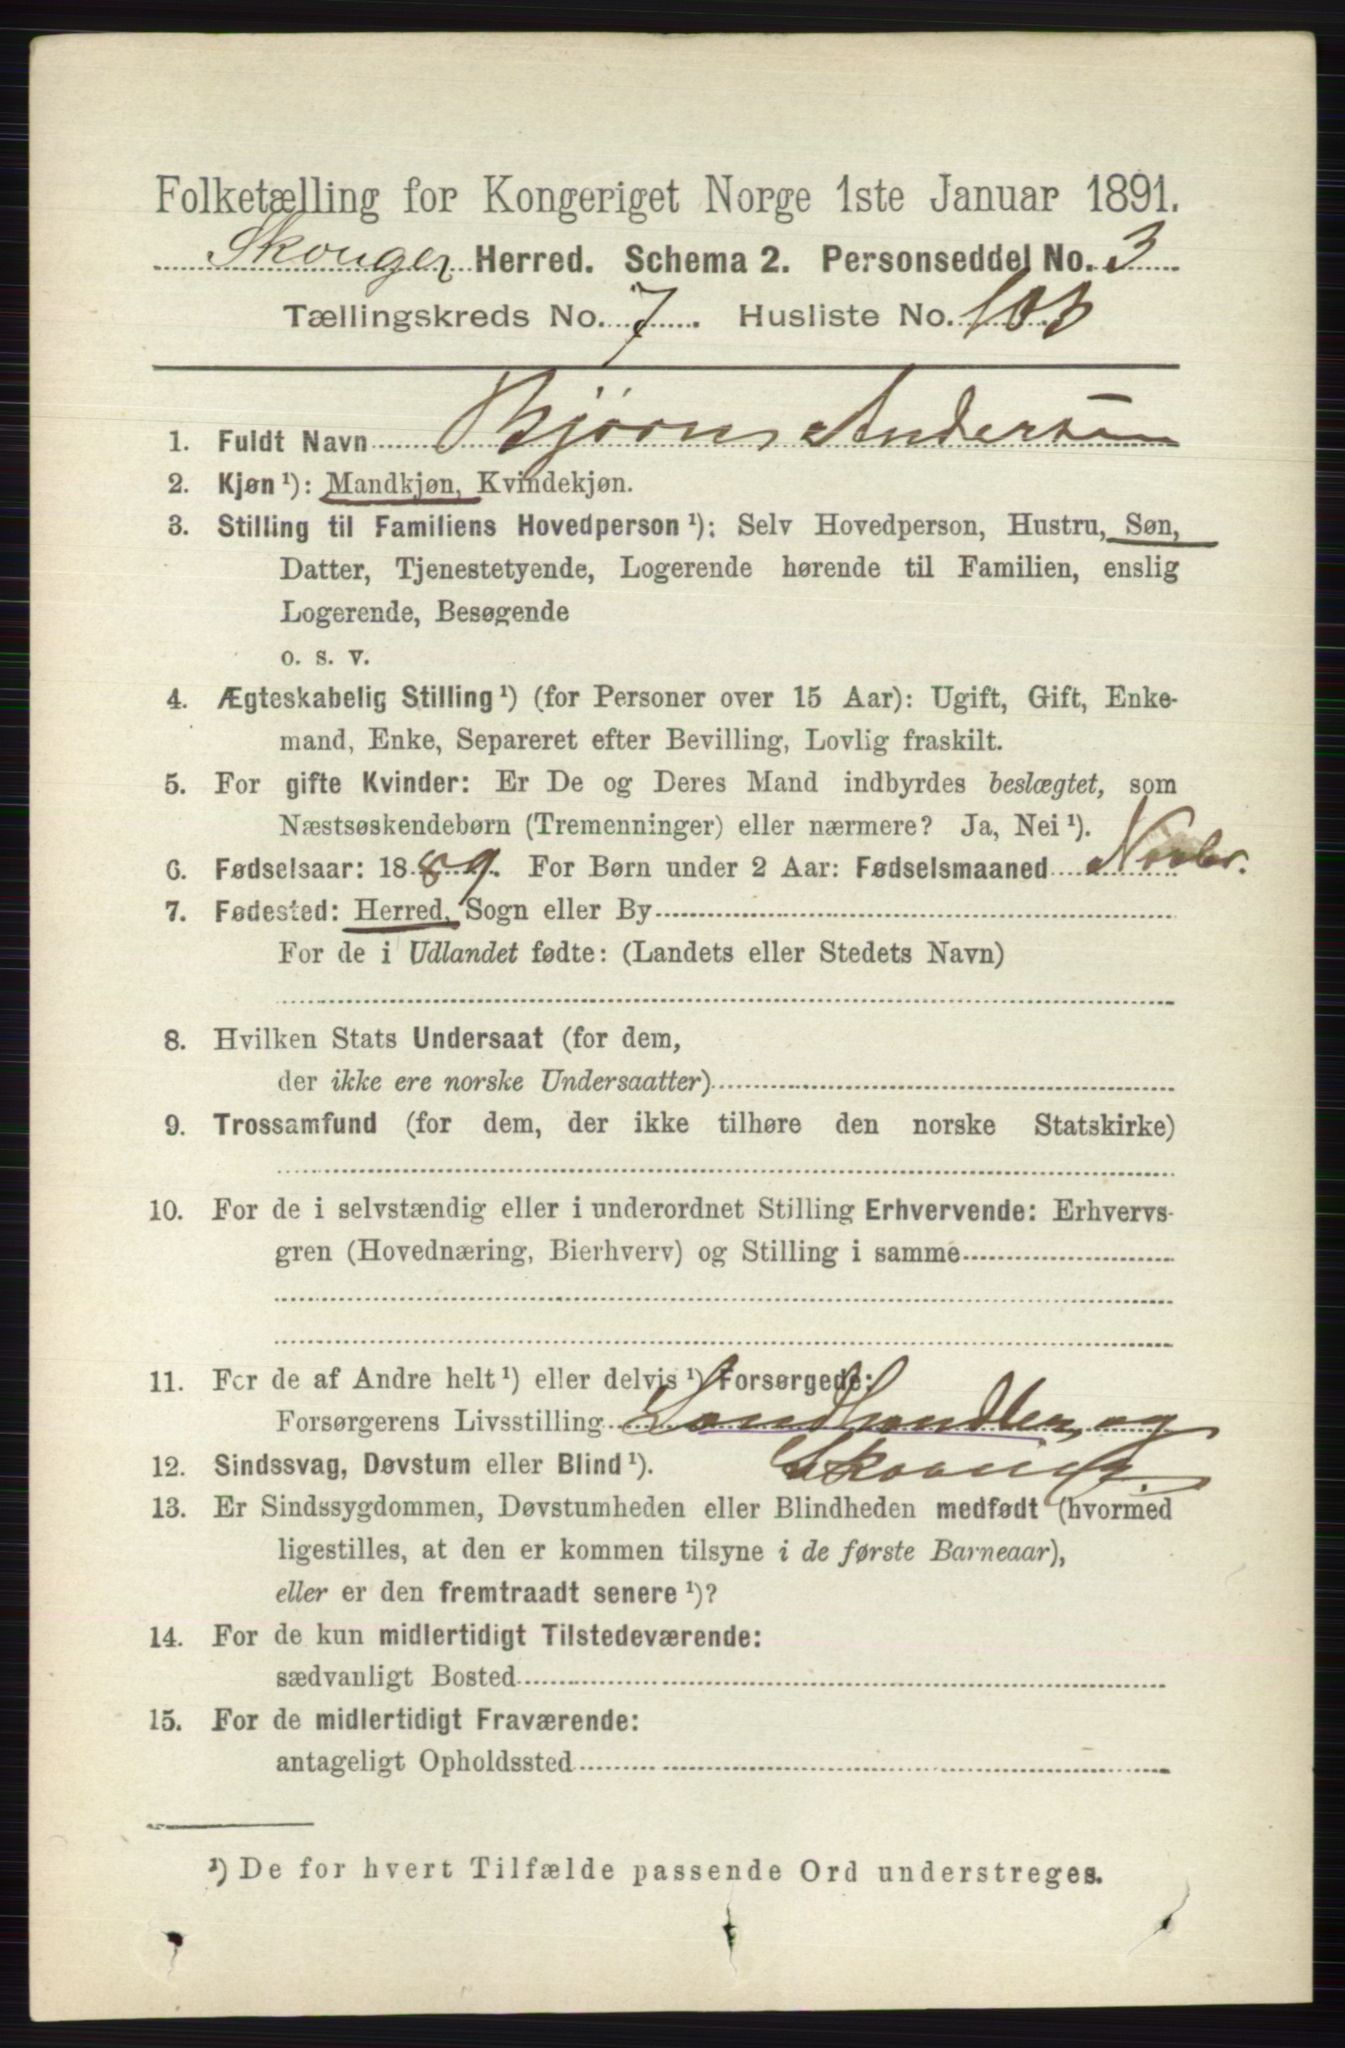 Folketælling for Kongeriget Norge 1ste Januar 1891.
Skouger Herred. Schema 2. Personseddel No. 3
Tællingskreds No. 7. Husliste No. 103
1. Fuldt Navn Bjørn Andersen
2. Kjøn ¹): Mandkjøn, Kvindekjøn.
3. Stilling til Familiens Hovedperson ¹): Selv Hovedperson, Hustru, Søn,
Datter, Tjenestetyende, Logerende hørende til Familien, enslig
Logerende, Besøgende
o. s. v.
4. Ægteskabelig Stilling ¹) (for Personer over 15 Aar): Ugift, Gift, Enke-
mand, Enke, Separeret efter Bevilling, Lovlig fraskilt.
5. For gifte Kvinder: Er De og Deres Mand indbyrdes beslægtet, som
Næstsøskendebørn (Tremenninger) eller nærmere? Ja, Nei ¹).
6. Fødselsaar: 1889. For Børn under 2 Aar: Fødselsmaaned Novbr.
7. Fødested: Herred, Sogn eller By
For de i Udlandet fødte: (Landets eller Stedets Navn)
8. Hvilken Stats Undersaat (for dem,
der ikke ere norske Undersaatter)
9. Trossamfund (for dem, der ikke tilhøre den norske Statskirke)
10. For de i selvstændig eller i underordnet Stilling Erhvervende: Erhvervs-
gren (Hovednæring, Bierhverv) og Stilling i samme
11. For de af Andre helt ¹) eller delvis ¹) Forsørgede:
Forsørgerens Livsstilling Landhandler, og
12. Sindssvag, Døvstum eller Blind ¹).
13. Er Sindssygdommen, Døvstumheden eller Blindheden medfødt (hvormed
ligestilles, at den er kommen tilsyne i de første Barneaar),
eller er den fremtraadt senere ¹)?
14. For de kun midlertidigt Tilstedeværende:
sædvanligt Bosted
15. For de midlertidigt Fraværende:
antageligt Opholdssted
¹) De for hvert Tilfælde passende Ord understreges.